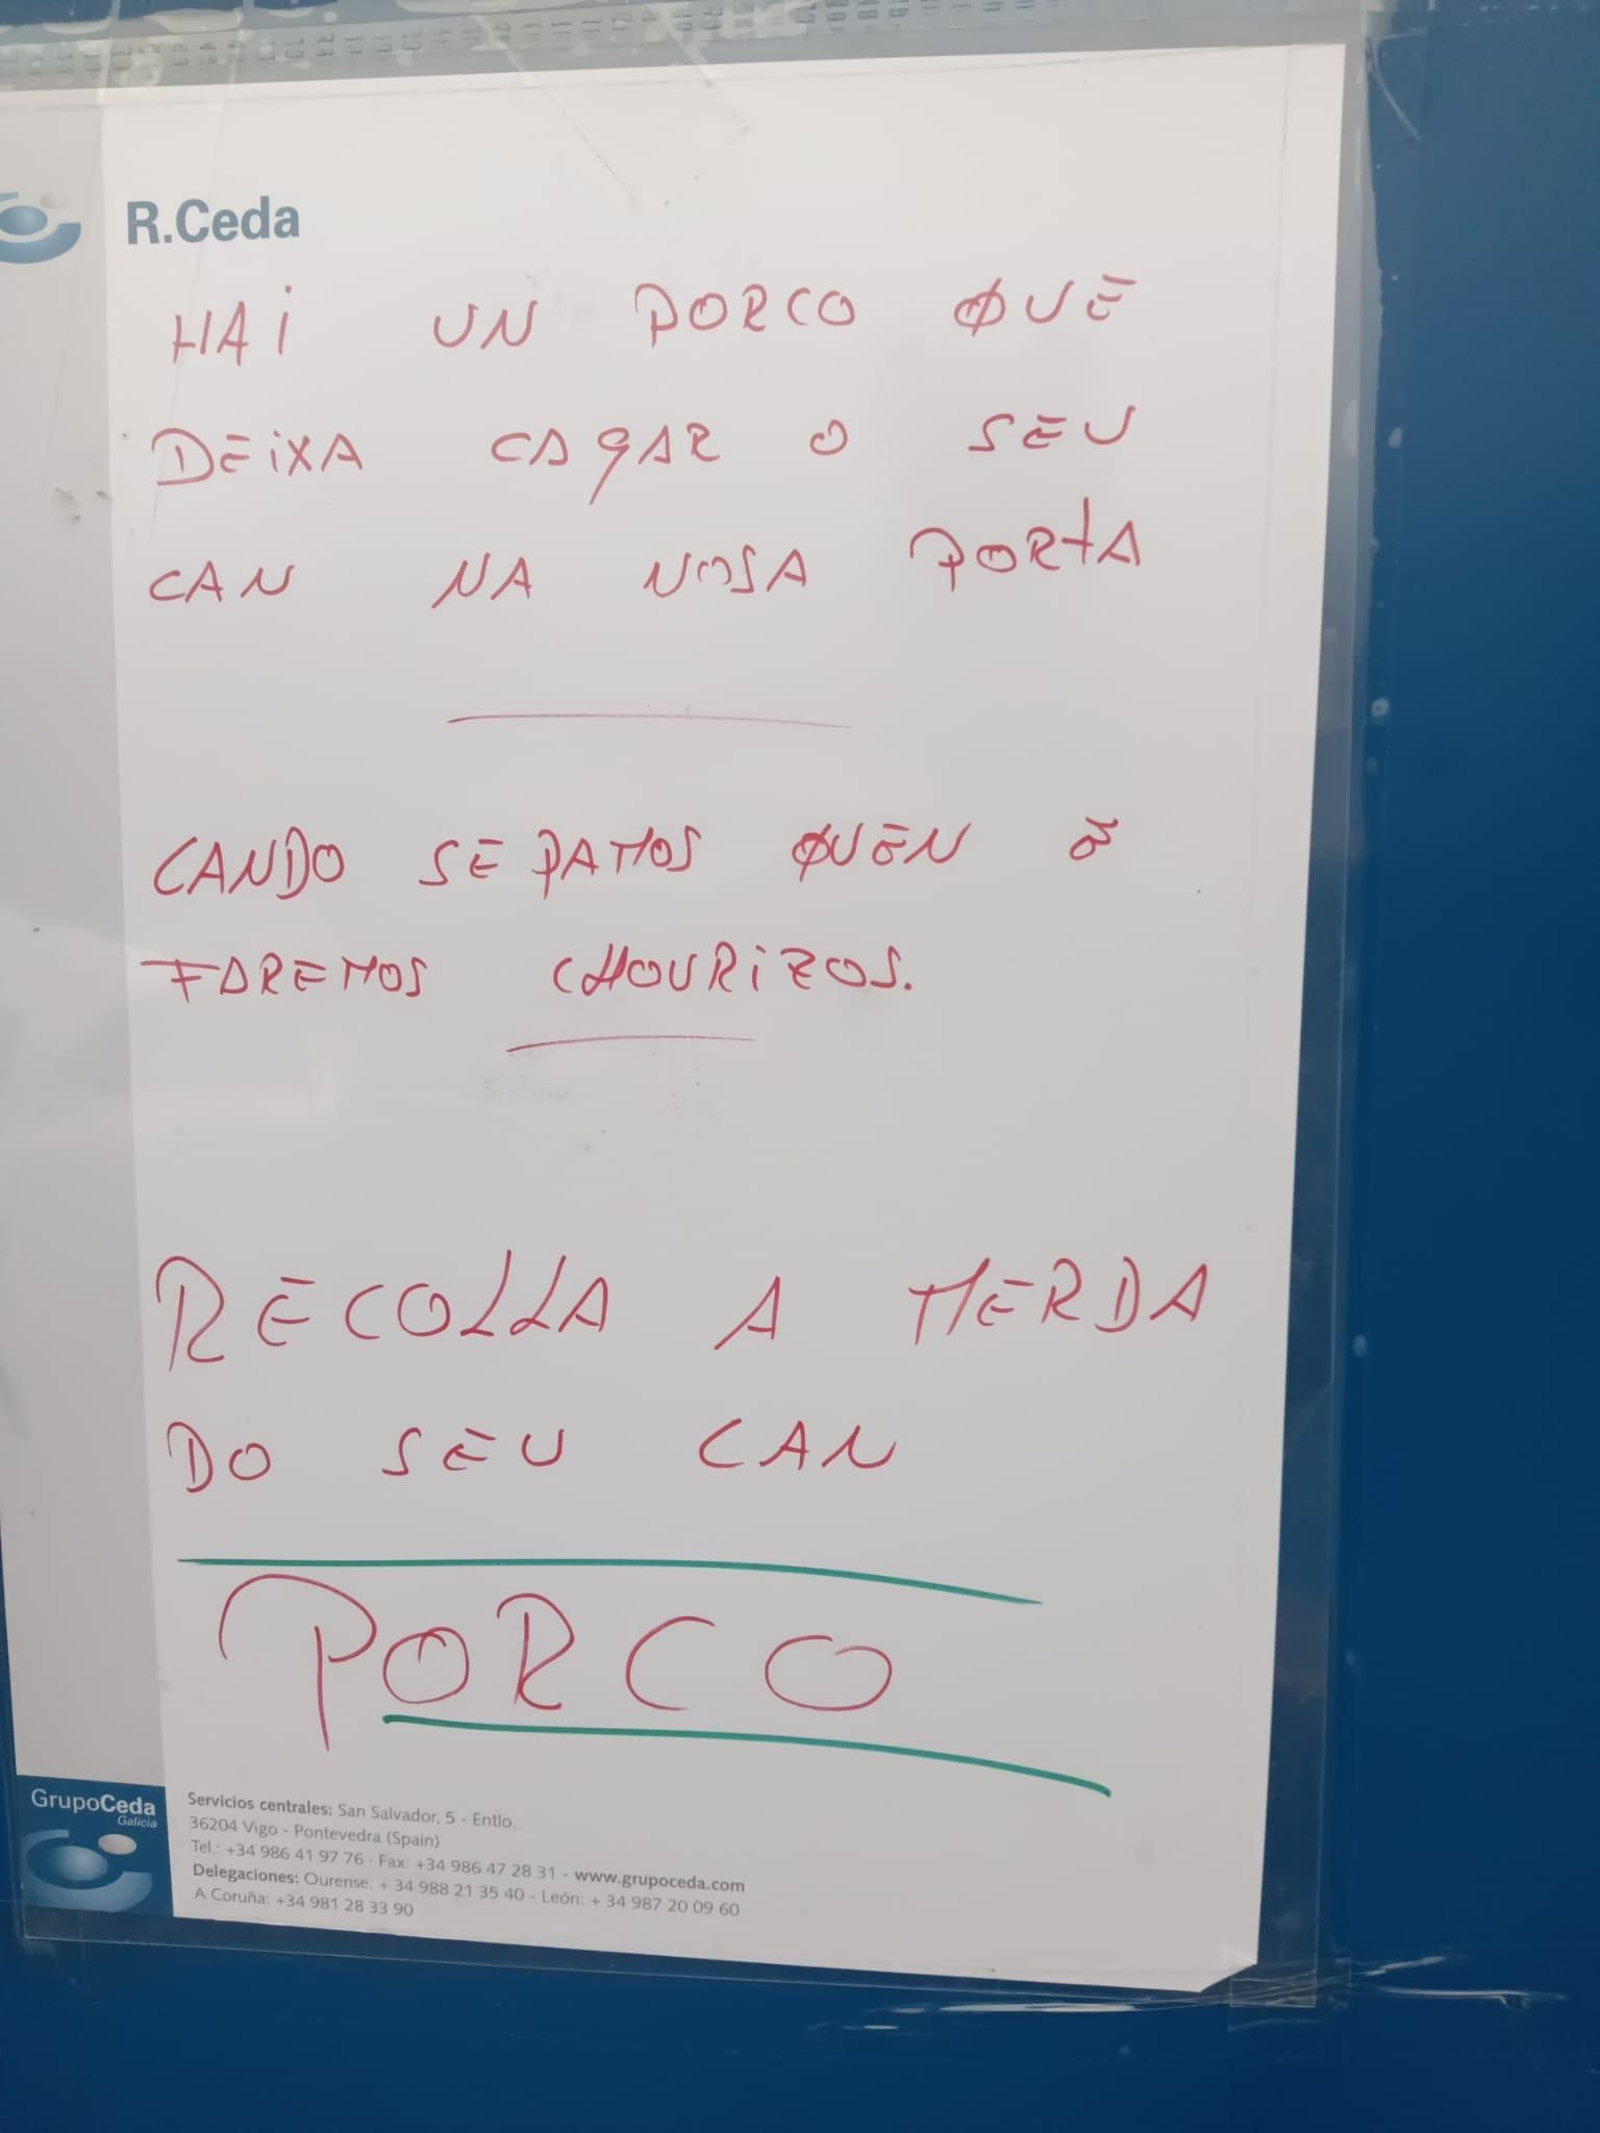 R.Ceda
HAI UN PORCO QUE
DEIXA CAGAR O SEU
CAN NA NOSA PORTA
CANDO SEPAMOS QUEN É
FAREMOS CHOURIZOS.
RECOLLA A MERDA
DO SEU CAN
PORCO
GrupoCeda
Galicia
Servicios centrales: San Salvador, 5 - Entlo.
36204 Vigo - Pontevedra (Spain)
Tel.: +34 986 41 97 76 - Fax: +34 986 47 28 31 - www.grupoceda.com
Delegaciones: Ourense: + 34 988 21 35 40 - León: + 34 987 20 09 60
A Coruña: +34 981 28 33 90